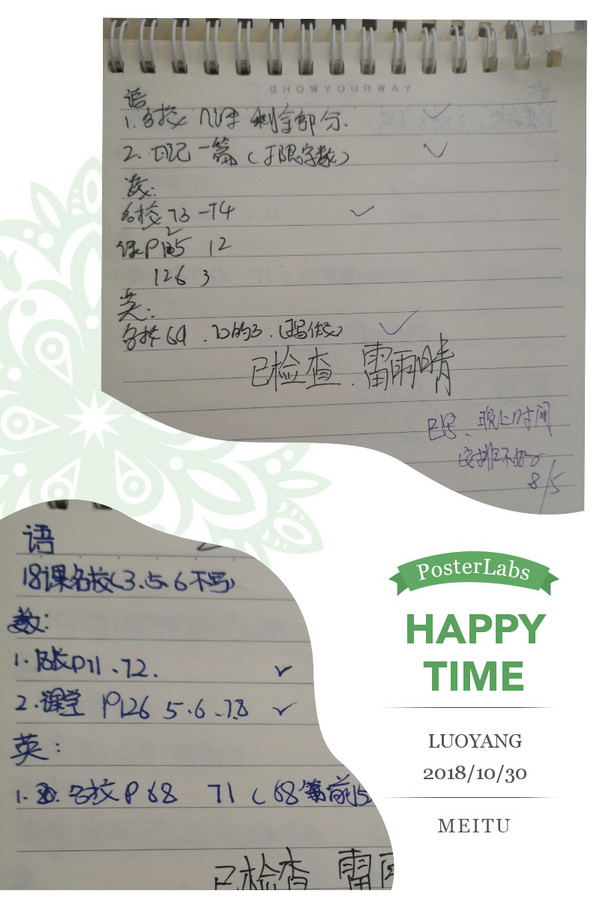 SHOWYOURWAY
语
1.名校 八课 剩余部分.
2.日记一篇(不限字数)
数:
名校 73-74
课P 12
126 3
英:
名校 69.
已检查.雷雨晴
已恩、晚上时间
安排不好
8/5
语
18课名校(3.5.6不写)
数:
1.P71、72.
2.课堂 P126 5.6.7.8
英:
1.名校P68 71(68第前5
已检查 雷雨
PosterLabs
HAPPY
TIME
LUOYANG
2018/10/30
MEITU